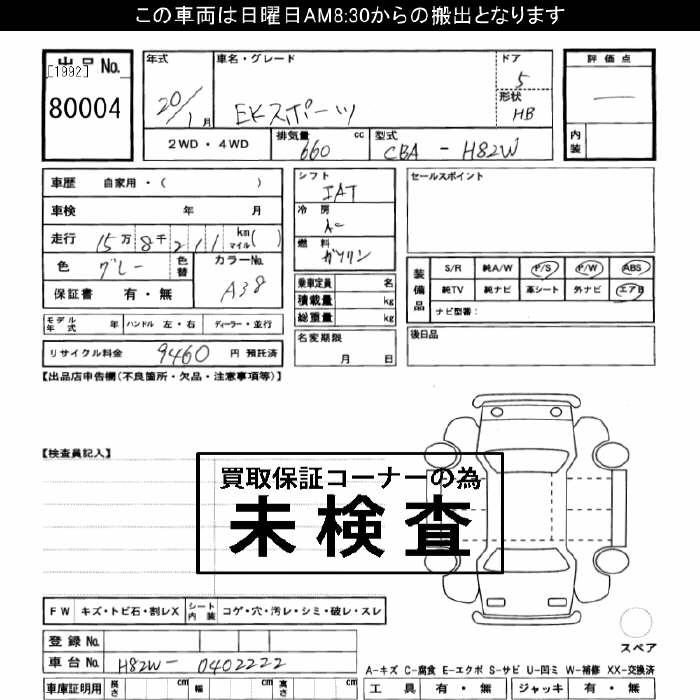 この車両は日曜日AM8:30からの搬出となります
出品No.
[1992]
80004
年式
20/1月
車名・グレード
EKスポーツ
ドア
5
形状
HB
評価点
内装
2WD・4WD
排気量
660 cc
型式
CBA - H82W
車歴 自家用・( )
車検 年 月
走行 15万8千211 km マイル( )
色 グレー 色替
カラーNo.
A38
保証書 有・無
モデル年式 年 ハンドル 左・右 ディーラー・並行
リサイクル料金 9460 円 預託済
シフト
IAT
冷房
燃料
ガソリン
乗車定員 名
積載量 kg
総重量 kg
名変期限
月 日
セールスポイント
装備品
S/R 純A/W P/S P/W ABS
純TV 純ナビ 革シート 外ナビ エアB
ナビ型番:
後日品
【出品店申告欄(不良箇所・欠品・注意事項等)】
【検査員記入】
買取保証コーナーの為
未検査
FW キズ・トビ石・割レX シート内装 コゲ・穴・汚レ・シミ・破レ・スレ
登録No.
車台No. H82W- 0402222
車庫証明用 長さ cm 幅 cm 高さ cm
スペア
A-キズ C-腐食 E-エクボ S-サビ U-凹ミ W-補修 XX-交換済
工具 有・無 ジャッキ 有・無